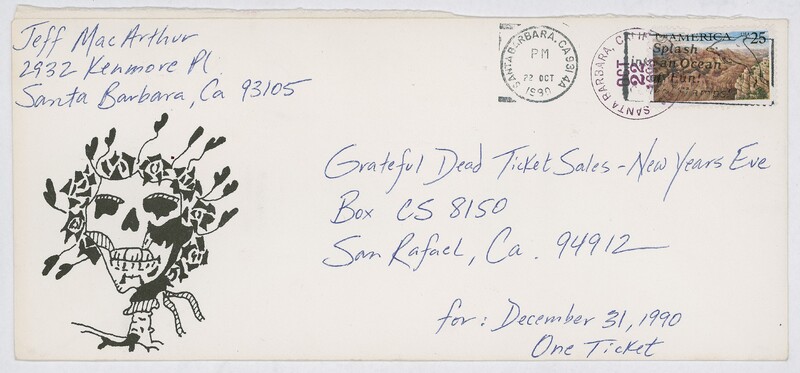 Jeff MacArthur
2932 Kenmore Pl
Santa Barbara, Ca 93105
SANTA BARBARA, CA 931 4A
PM
22 OCT
1990
SANTA BARBARA, CALIF
OCT
22
AMERICA 25
Splash
an Ocean
Fun!
Grateful Dead Ticket Sales - New Years Eve
Box CS 8150
San Rafael, Ca. 94912
for: December 31, 1990
One Ticket